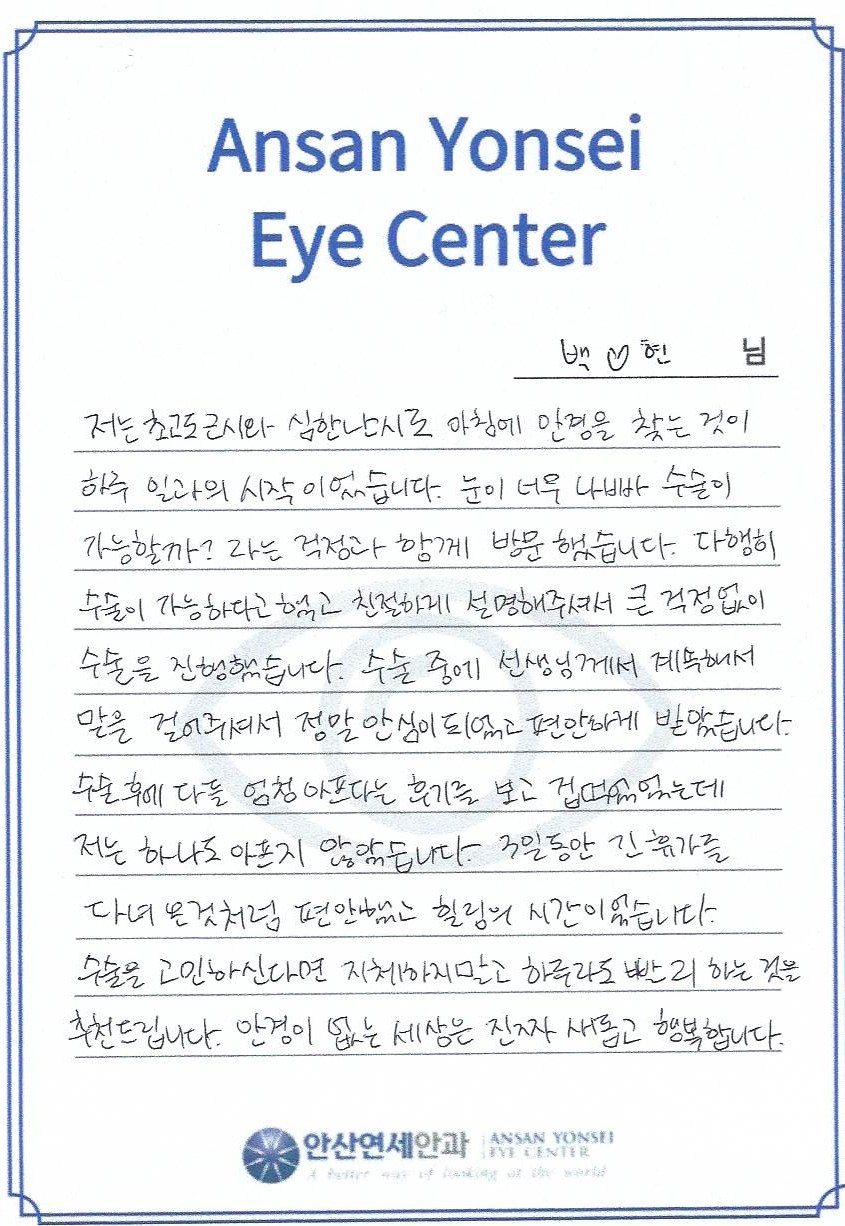 Ansan Yonsei
Eye Center
백♡현 님
저는 초고도 근시와 심한난시로 아침에 안경을 찾는 것이
하루 일과의 시작이었습니다. 눈이 너무 나빠 수술이
가능할까? 라는 걱정과 함께 방문했습니다. 다행히
수술이 가능하다고 했고 친절하게 설명해주셔서 큰 걱정없이
수술을 진행했습니다. 수술 중에 선생님께서 계속해서
말을 걸어주셔서 정말 안심이 되었고 편안하게 받았습니다.
수술 후에 다들 엄청 아프다는 후기를 보고 겁먹었었는데
저는 하나도 아프지 않았습니다. 3일동안 긴 휴가를
다녀 온것처럼 편안했고 힐링의 시간이였습니다.
수술을 고민하신다면 지체하지말고 하루라도 빨리 하는 것을
추천드립니다. 안경이 없는 세상은 진짜 새롭고 행복합니다.
안산연세안과 ANSAN YONSEI
EYE CENTER
A better way of looking at the world